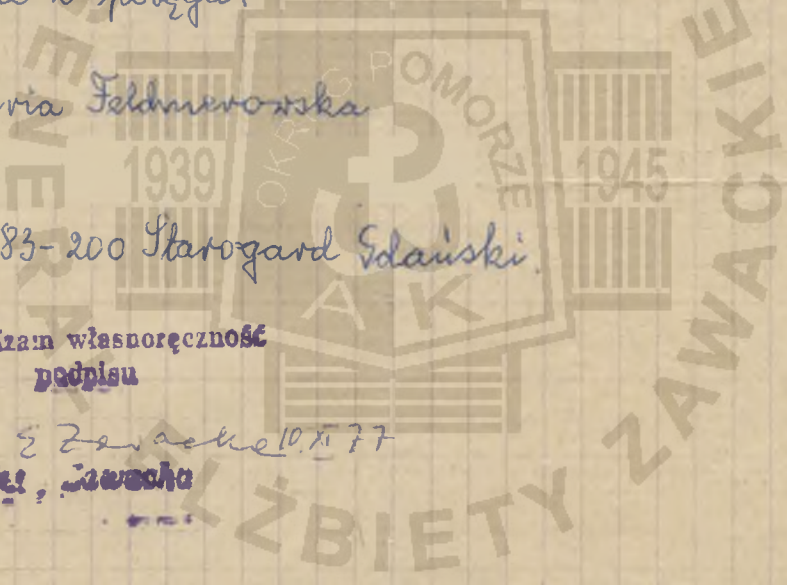 ria Feldmerowska
83-200 Starogard Gdański.
własnoręczność
podpisu
E Zawacka 10.XI 77
Zawacka
1939 OKRĘG POMORZE 1945
AK
GENERAŁ ELŻBIETY ZAWACKIE